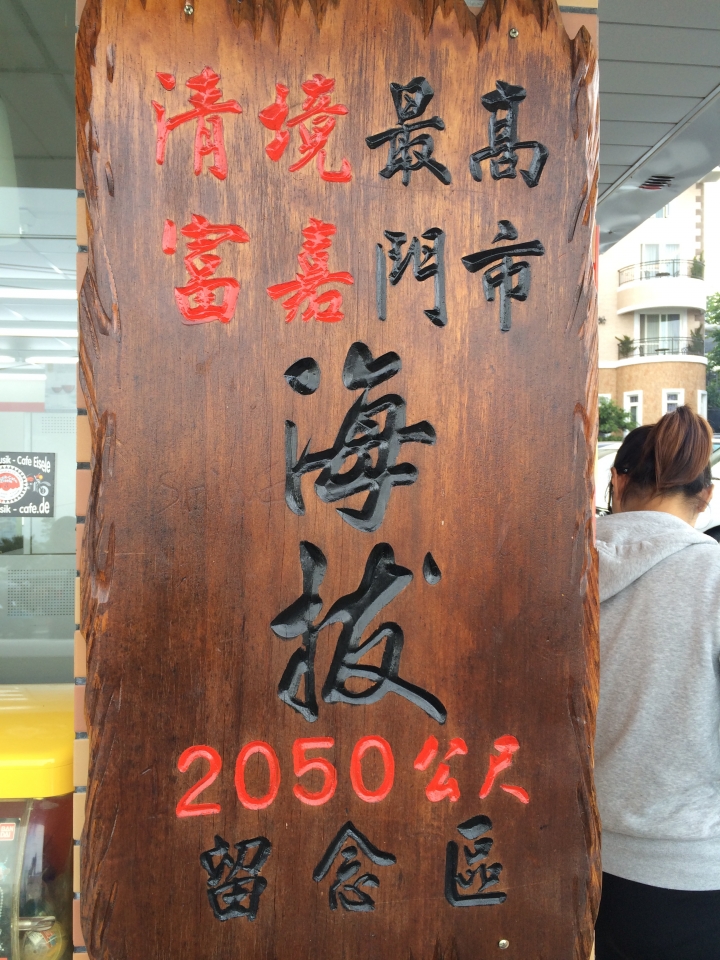 清境最高
富嘉門市
海拔
2050公尺
留念區
usik - Cafe Eisele
sik - cafe.de